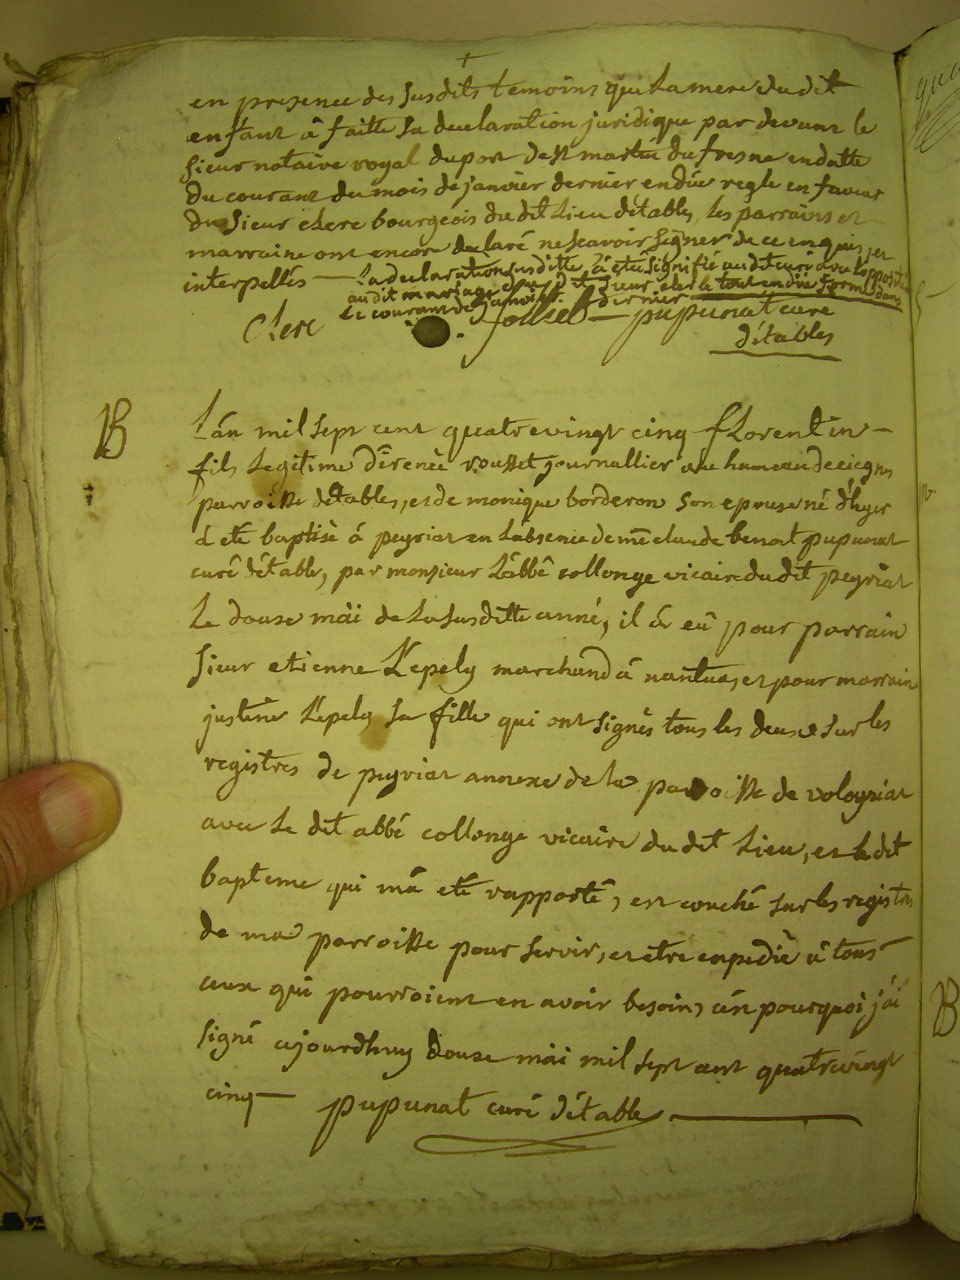 en presence des susdits temoins que la mere du dit
enfant â faitte sa declaration juridique par devant le
sieur notaire royal du port de st martin du fresne en datte
du courant du mois de janvier dernier en düe regle en faveur
du sieur clerc bourgeois du dit lieu détables, les parrains et
marraine ont encore declaré ne scavoir signer de ce enquis, et
interpellés — la declaration susditte â été signifié au dit curé avec opposition
au dit mariage par le dit sieur clerc le tout en düe forme dans
le courant de janvier dernier
Clerc pupunat curé
détables
B
Lán mil sept cent quatrevingt cinq florentin
fils legitime dírenée rousset journallier au hameau de
parroisse détables, et de monique borderon son epouse né d'hyer
á eté baptisé á peyriat en labsence de me claude benoit pupunat
curé détable, par monsieur Labbé collonge vicaire du dit peyriat
Le douze mäi de la susditte anné, il â eû pour parrain
sieur etienne L'epely marchand â nantua, et pour marraine
justine L'epely sa fille qui ont signés tous les deux sur les
registres de peyriat annexe de la paroisse de volognat
avec le dit abbé collonge vicaire du dit Lieu, et le dit
bapteme qui mâ eté rapporté, est couché sur les registres
de ma parroisse pour servir, et etre expedié â tous
ceux qui pourroient en avoir besoin, c'ést pourquoi j'ái
signé ajourdhuy douze mäi mil sept cent quatrevingt
cinq — pupunat curé détable
B